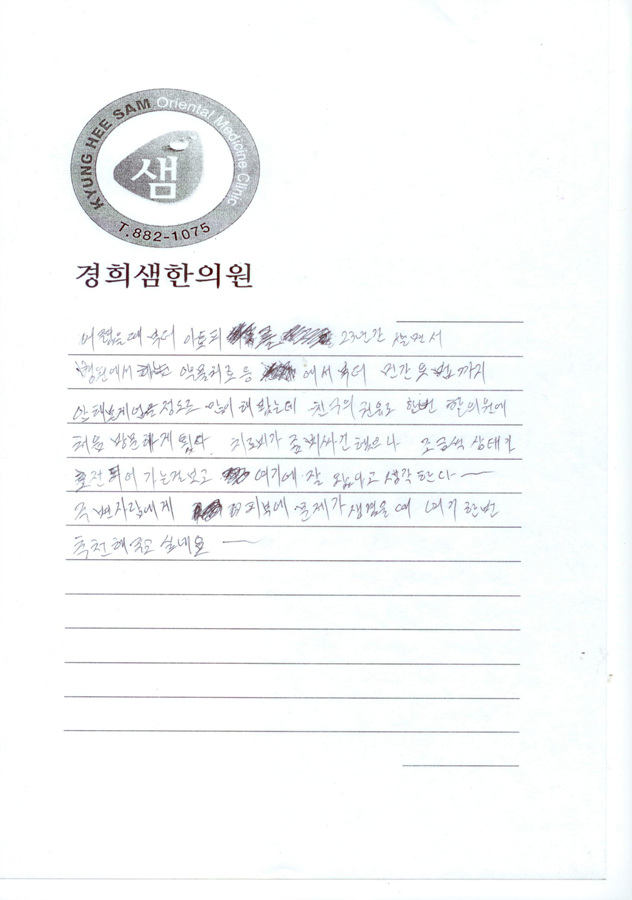 KYUNG HEE SAM Oriental Medicine Clinic
샘
T.882-1075
경희샘한의원
어렸을때 부터 아토피 23년간 살면서
병원에서 하는 약물치료 등 에서 부터 민간요법까지
안해본게없을정도로 많이 해봤는데 친구의 권유로 한번 한의원에
처음 방문하게 됬다. 치료비가 좀 비싸긴했으나 조금씩 상태가
호전되어 가는걸보고 여기에 잘 왔다고 생각한다
주변사람에게 피부에 문제가 생겼을 때 여기 한번
추천해주고 싶네요